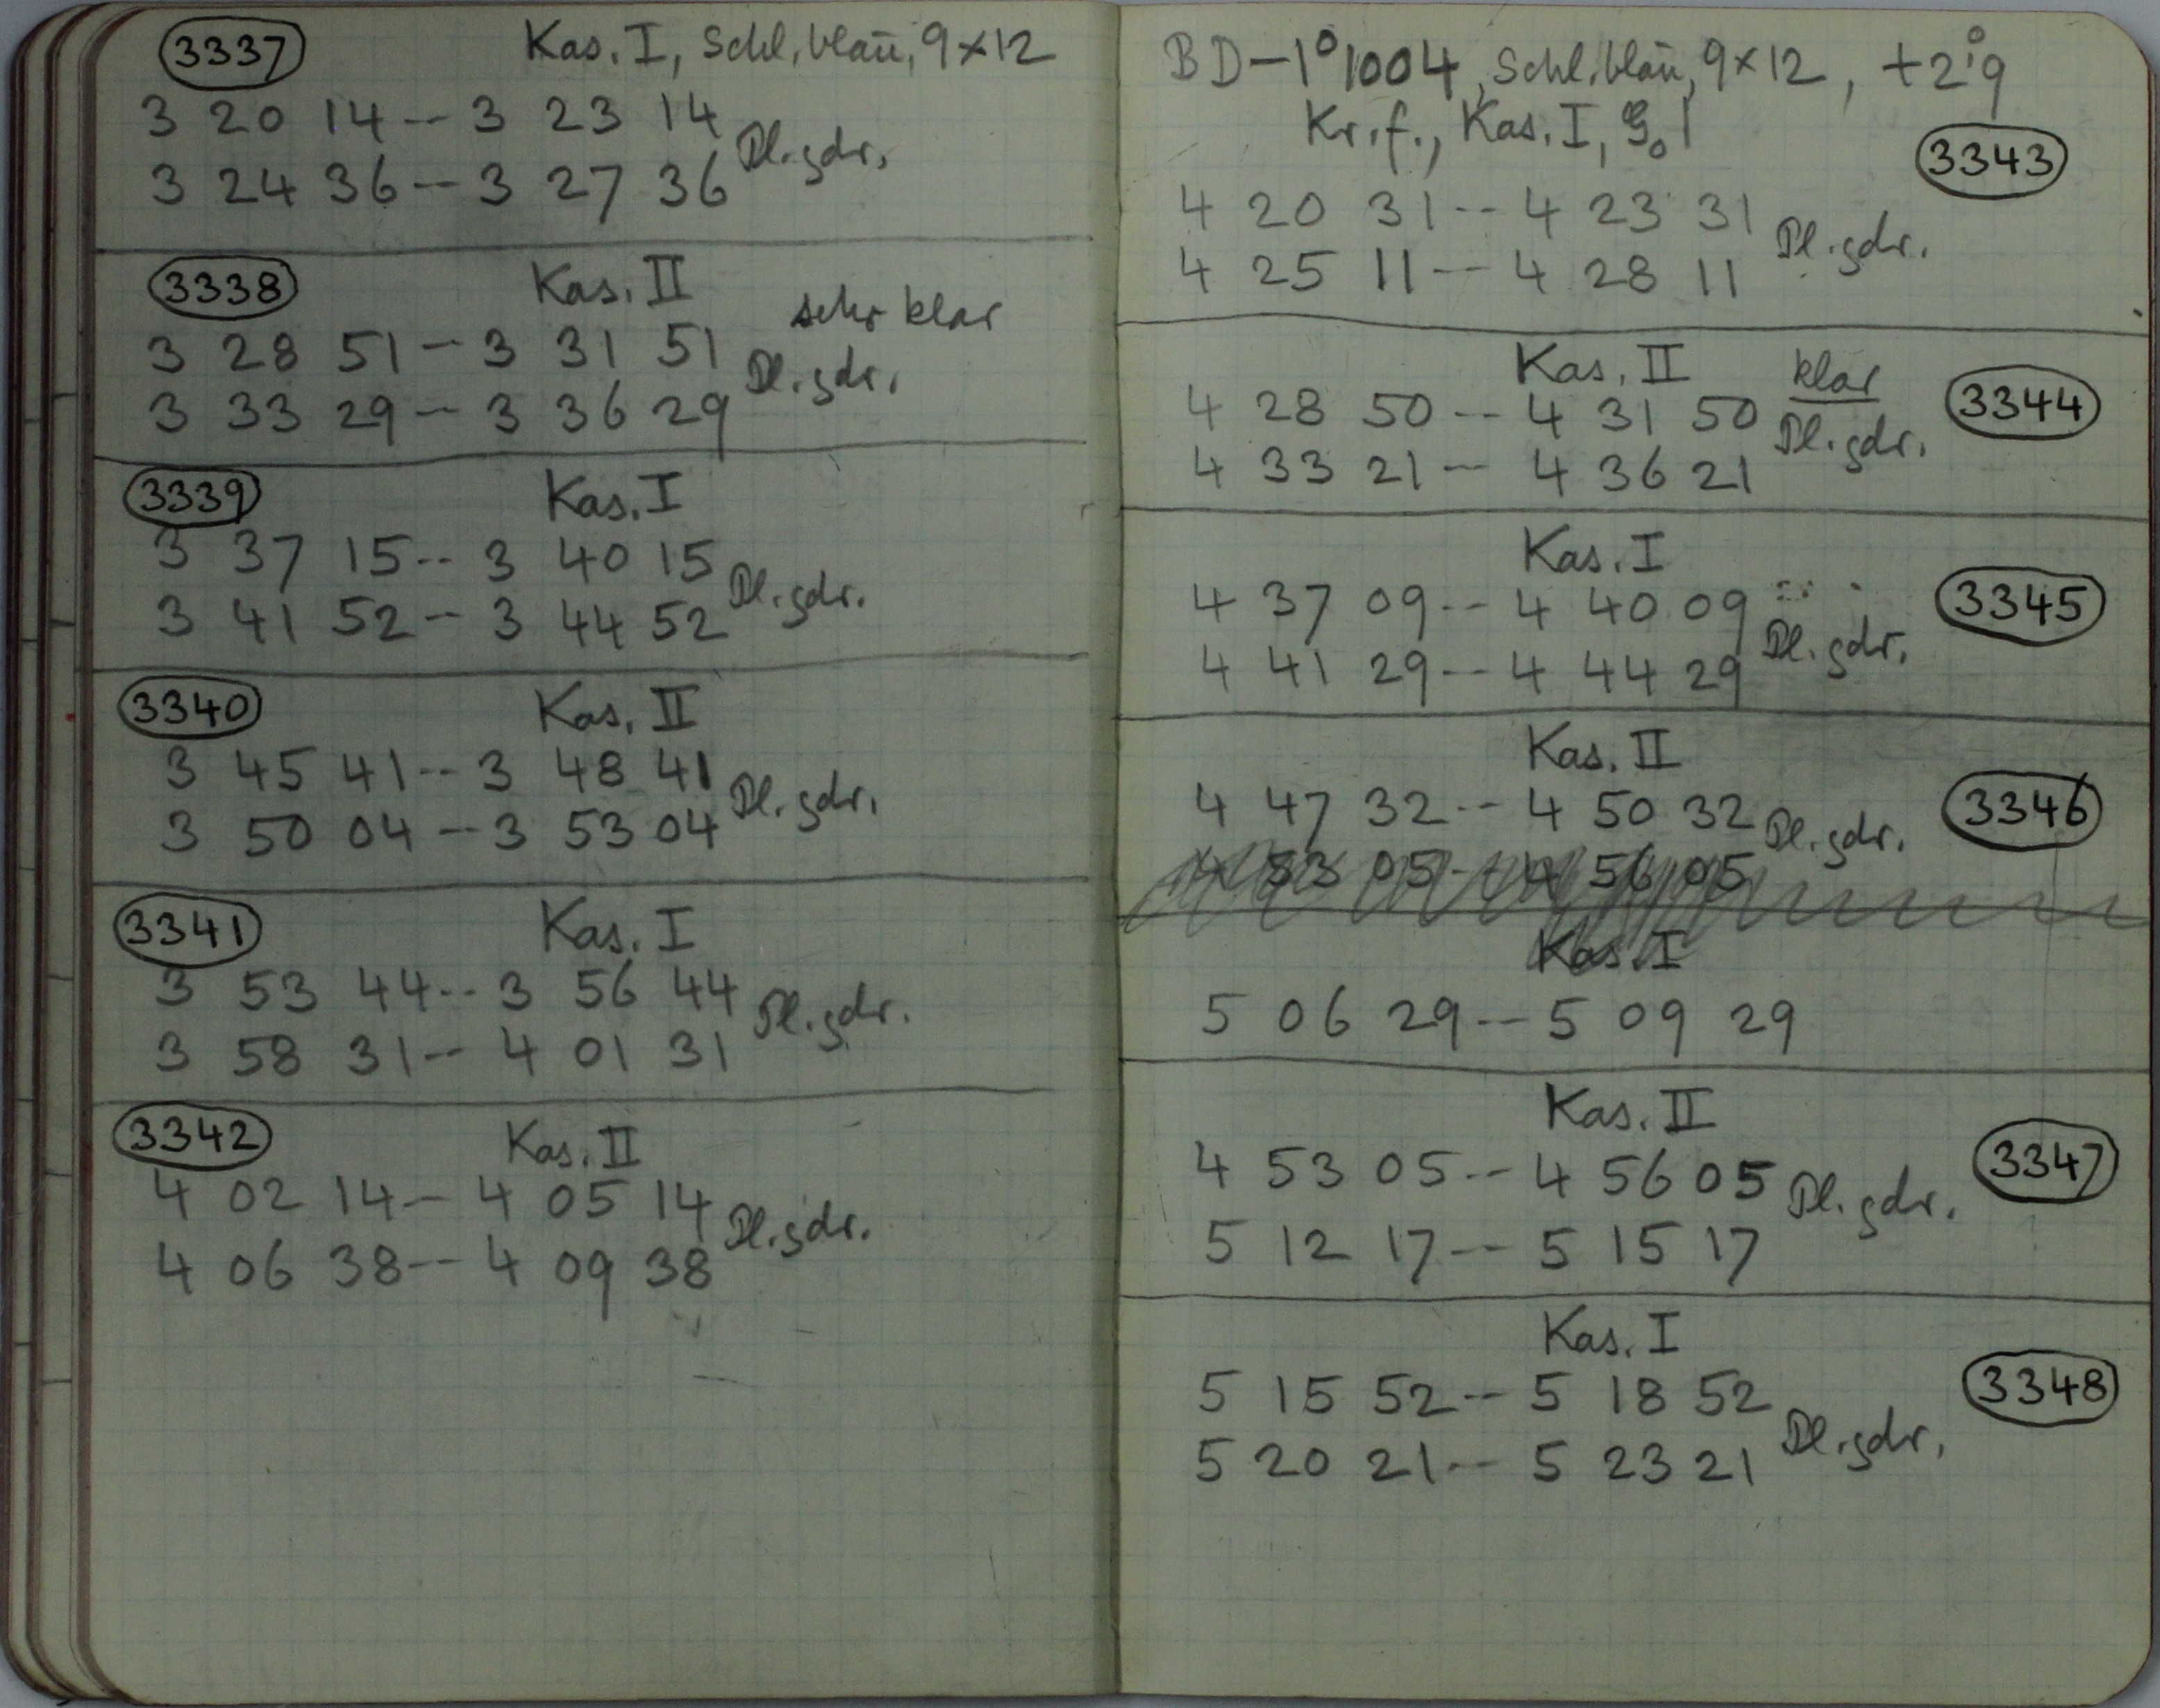 3337 Kas. I, Schl. blau, 9×12
3 20 14 -- 3 23 14
Pl. gdr.
3 24 36 -- 3 27 36
3338 Kas. II
sehr klar
3 28 51 -- 3 31 51
Pl. gdr.
3 33 29 -- 3 36 29
3339 Kas. I
3 37 15 -- 3 40 15
Pl. gdr.
3 41 52 -- 3 44 52
3340 Kas. II
3 45 41 -- 3 48 41
Pl. gdr.
3 50 04 -- 3 53 04
3341 Kas. I
3 53 44 -- 3 56 44
Pl. gdr.
3 58 31 -- 4 01 31
3342 Kas. II
4 02 14 -- 4 05 14
Pl. gdr.
4 06 38 -- 4 09 38
BD -1° 1004, Schl. blau, 9×12, +2°.9
Kr. f., Kas. I,
3343
4 20 31 -- 4 23 31
Pl. gdr.
4 25 11 -- 4 28 11
Kas. II klar
3344
4 28 50 -- 4 31 50
Pl. gdr.
4 33 21 -- 4 36 21
Kas. I
3345
4 37 09 -- 4 40 09
Pl. gdr.
4 41 29 -- 4 44 29
Kas. II
3346
4 47 32 -- 4 50 32
Pl. gdr.
4 53 05 -- 4 56 05
Kas. I
5 06 29 -- 5 09 29
Kas. II
3347
4 53 05 -- 4 56 05
Pl. gdr.
5 12 17 -- 5 15 17
Kas. I
3348
5 15 52 -- 5 18 52
Pl. gdr.
5 20 21 -- 5 23 21